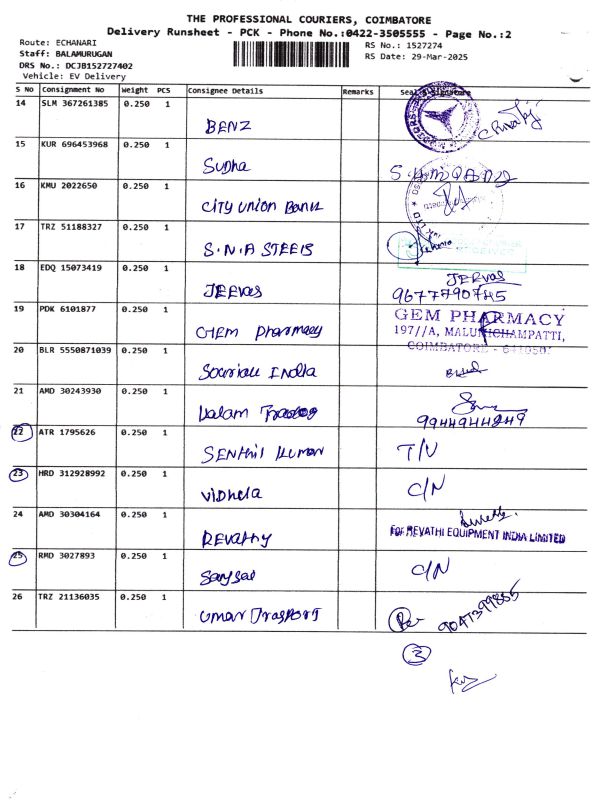 THE PROFESSIONAL COURIERS, COIMBATORE
Delivery Runsheet - PCK - Phone No.:0422-3505555 - Page No.:2
Route: ECHANARI
RS No.: 1527274
Staff: BALAMURUGAN
RS Date: 29-Mar-2025
DRS No.: DCJB152727402
Vehicle: EV Delivery
S NO Consignment No Weight PCS Consignee Details Remarks Seal & Signature
14 SLM 367261385 0.250 1
BENZ
15 KUR 696453968 0.250 1
Sudha
16 KMU 2022650 0.250 1
CITY UNION BANK
17 TRZ 51188327 0.250 1
S.N.A STEELS
18 EDQ 15073419 0.250 1
JEEVAS JERVAS
9677790745
19 PDK 6101877 0.250 1
GEM Pharmacy
GEM PHARMACY
197//A, MALUMICHAMPATTI,
COIMBATORE - 641050
20 BLR 5550871039 0.250 1
INDIA
21 AMD 30243930 0.250 1
9944944849
22 ATR 1795626 0.250 1
SENTHIL KUMAR
23 HRD 312928992 0.250 1
C/N
24 AMD 30304164 0.250 1
REVATHY
FOR REVATHI EQUIPMENT INDIA LIMITED
25 RMD 3027893 0.250 1
C/N
26 TRZ 21136035 0.250 1
UMAR TRASPORT
9047399855
3